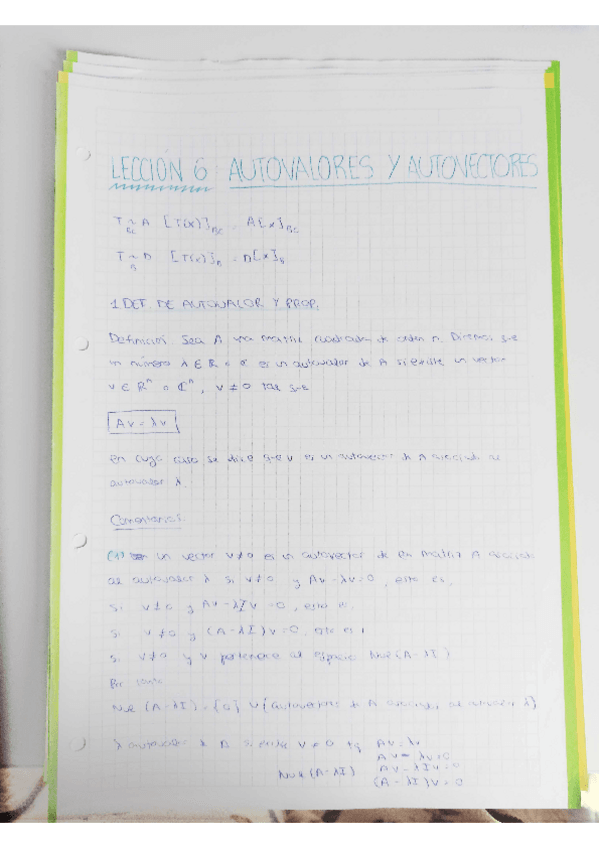 LECCIÓN 6: AUTOVALORES Y AUTOVECTORES
T ~ A [T(x)]_BC = A[x]_BC
BC
T ~ D [T(x)]_B = D[x]_B
B
1. DEF. DE AUTOVALOR Y PROP.
Definición: Sea A una matriz cuadrada de orden n. Diremos que
un número λ ∈ R o C es un autovalor de A si existe un vector
v ∈ Rⁿ o Cⁿ, v ≠ 0 tal que
Av = λv
en cuyo caso se dice que v es un autovector de A asociado al
autovalor λ.
Comentarios:
(1) un vector v≠0 es un autovector de la matriz A asociado
al autovalor λ si v≠0 y Av - λv = 0, esto es,
si v≠0 y Av - λIv = 0, esto es,
si v≠0 y (A - λI)v = 0, esto es,
si v≠0 y v pertenece al espacio Nul(A - λI)
Por tanto
Nul (A - λI) = {0} ∪ {autovectores de A asociados al autovalor λ}
λ autovalor si existe v ≠ 0 tq Av = λv
Av - λv = 0
Nul (A - λI) Av - λIv = 0
(A - λI)v = 0